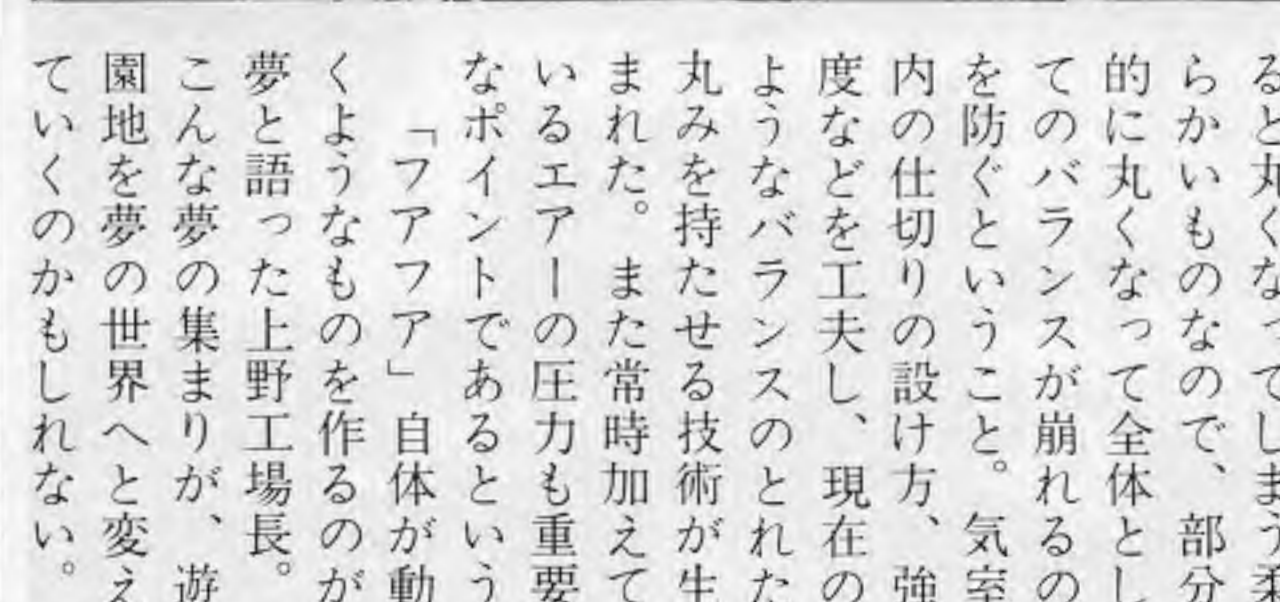 ると丸くなってしまう柔
らかいものなので、部分
的に丸くなって全体とし
てのバランスが崩れるの
を防ぐということ。気室
内の仕切りの設け方、強
度などを工夫し、現在の
ようなバランスのとれた
丸みを持たせる技術が生
まれた。また常時加えて
いるエアーの圧力も重要
なポイントであるという
「フアフア」自体が動
くようなものを作るのが
夢と語った上野工場長。
こんな夢の集まりが、遊
園地を夢の世界へと変え
ていくのかもしれない。